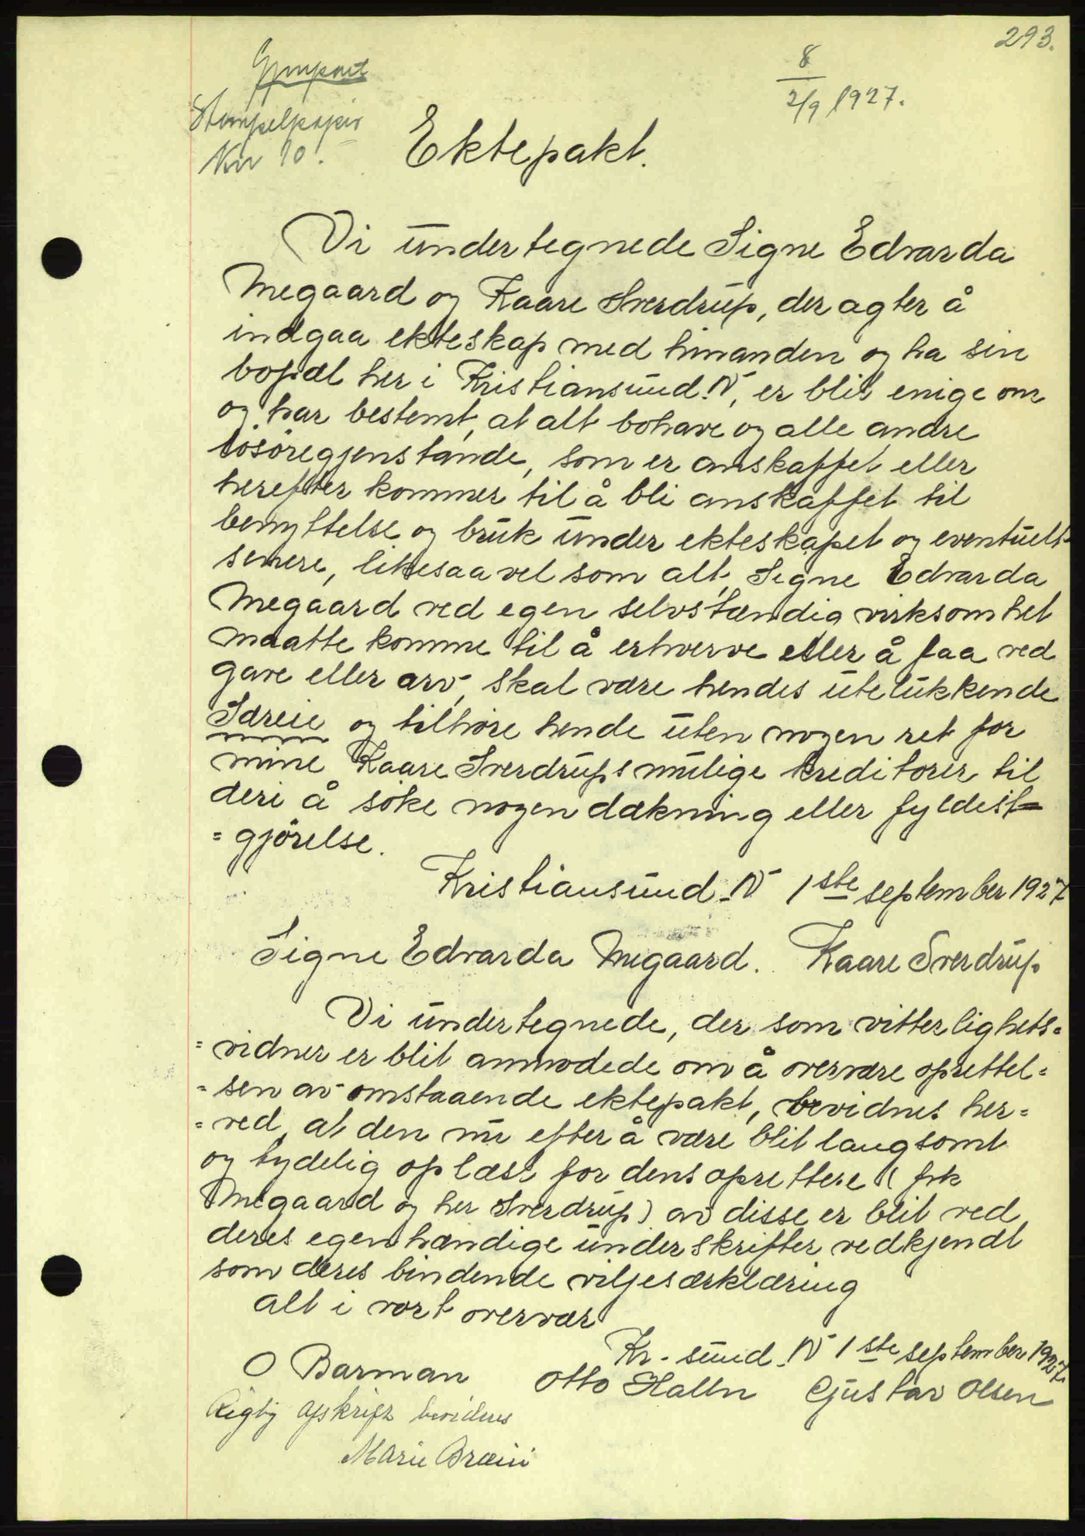 293.
8
2/9 1927.
Gjenpart
Stempelpapir
Kr 10.
Ektepakt.
Vi undertegnede Signe Edvarda
Megaard og Kaare Sverdrup, der agter å
indgaa ekteskap med hinanden og ha sin
bopæl her i Kristiansund N, er blit enige om
og har bestemt, at alt bohave og alle andre
løsøregjenstande, som er anskaffet eller
herefter kommer til å bli anskaffet til
benyttelse og bruk under ekteskapet og eventuelt
senere, likesaavel som alt, Signe Edvarda
Megaard ved egen selvstændig virksomhet
maatte komme til å erhverve eller å faa ved
gave eller arv, skal være hendes utelukkende
Særeie og tilhøre hende uten nogen ret for
mine Kaare Sverdrups mulige kreditorer til
deri å søke nogen dækning eller fyldest=
=gjørelse.
Kristiansund N 1ste september 1927
Signe Edvarda Megaard. Kaare Sverdrup
Vi undertegnede, der som vitterlighets=
=vidner er blit anmodede om å overvære oprettel=
=sen av omstaaende ektepakt, bevidner her=
=ved, at den nu efter å være blit langsomt
og tydelig oplæst for dens oprettere (frk
Megaard og her Sverdrup) av disse er blit ved
deres egenhændige underskrifter vedkjendt
som deres bindende viljeserklæring
alt i vort overvær
Kr.sund N 1ste september 1927.
O Barman Otto Halln Gustav Olsen
Rigtig afskrift bevidnes
Marie Bræin